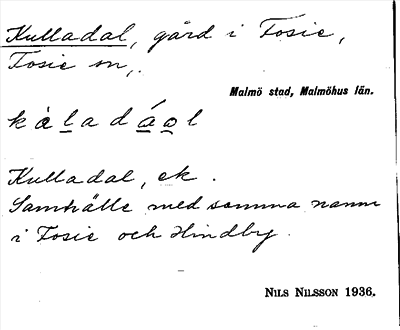 Kulladal, gård i Fosie,
Fosie sn,.
Malmö stad, Malmöhus län.
kàladáol
Kulladal, ek.
Samhälle med samma namn
i Fosie och Hindby.
NILS NILSSON 1936.